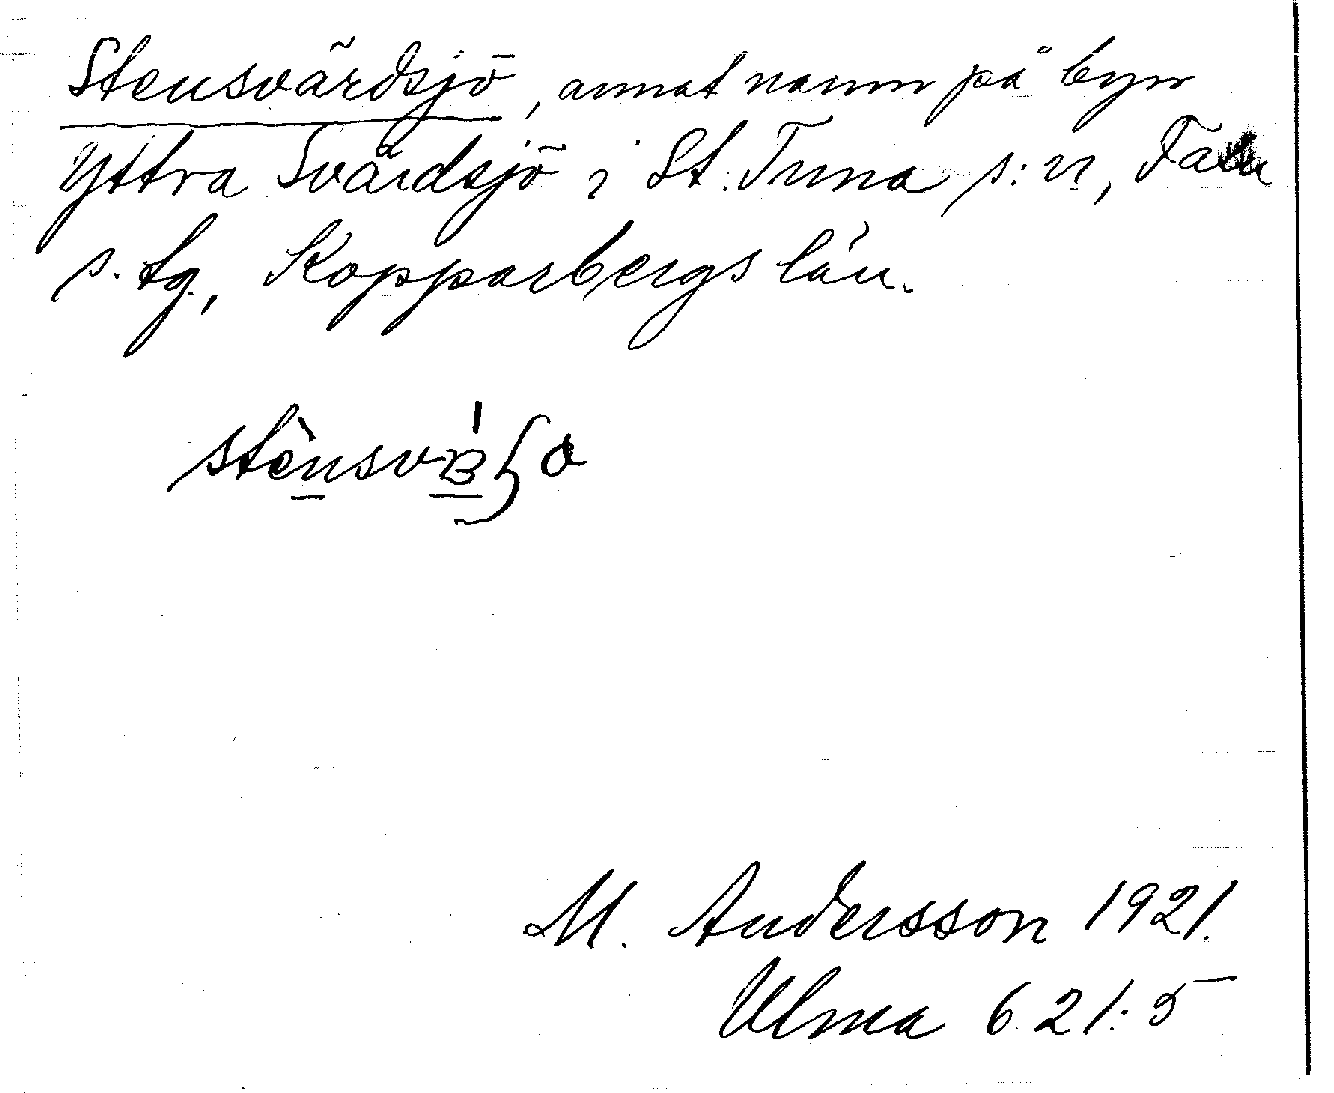 Stensvärdsjö, annat namn på byn
Yttra Svärdsjö i St. Tuna s:n, Falu
s. tg., Kopparbergs län.
M. Andersson 1921.
Ulma 621:5